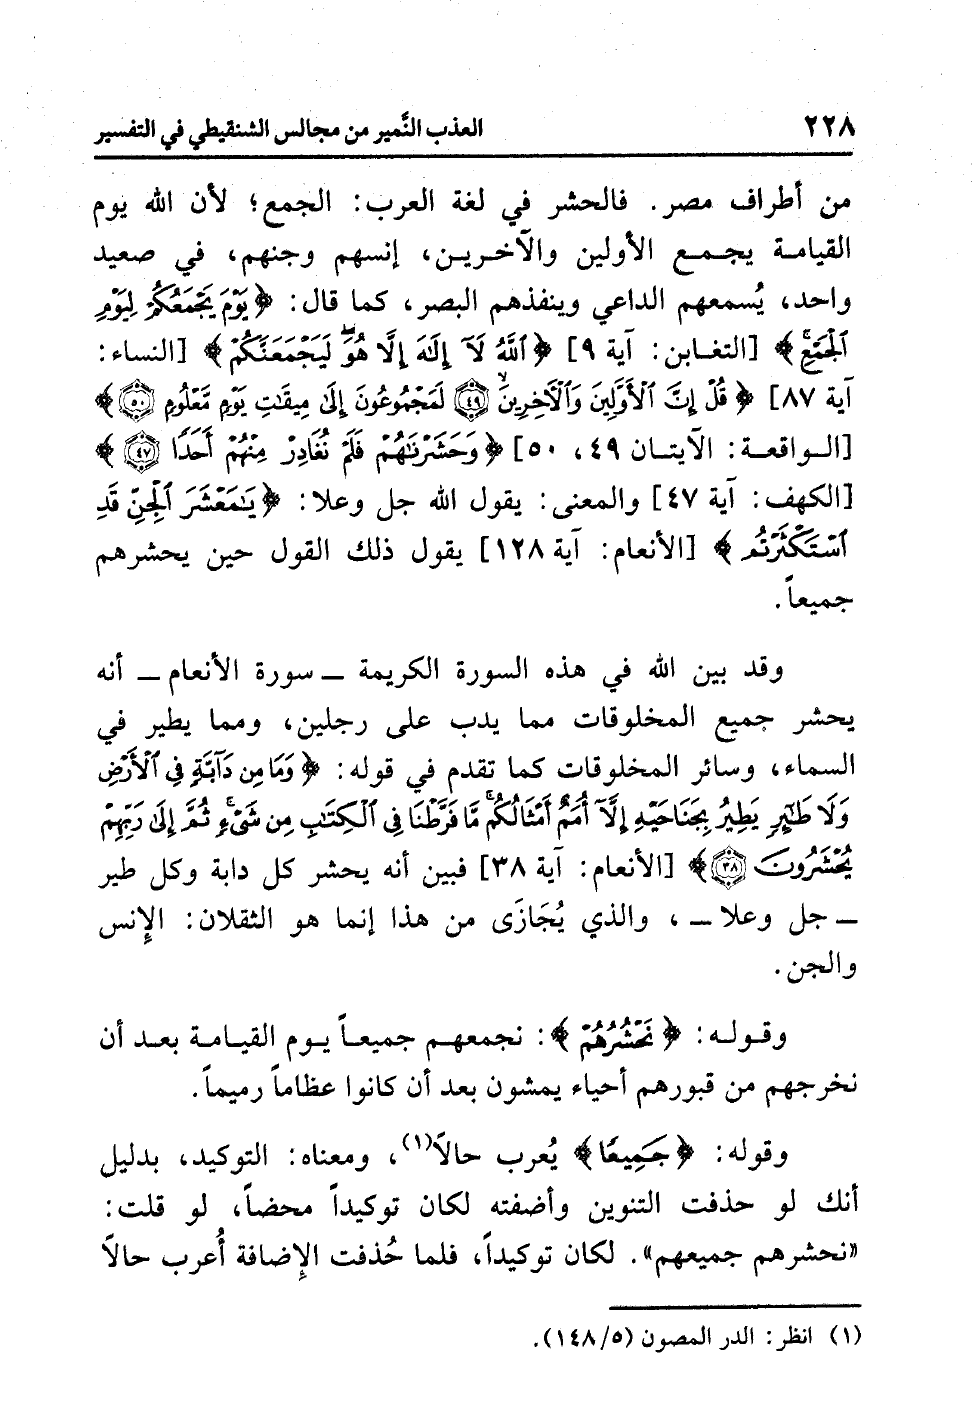 ٢٢٨ العذب النَّمير من مجالس الشنقيطي في التفسير
من أطراف مصر. فالحشر في لغة العرب: الجمع؛ لأن الله يوم
القيامة يجمع الأولين والآخرين، إنسهم وجنهم، في صعيد
واحد، يُسمعهم الداعي وينفذهم البصر، كما قال: ﴿يَوْمَ يَجْمَعُكُمْ لِيَوْمِ
ٱلْجَمْعِ﴾ [التغابن: آية ٩] ﴿ٱللَّهُ لَآ إِلَٰهَ إِلَّا هُوَ لَيَجْمَعَنَّكُمْ﴾ [النساء:
آية ٨٧] ﴿قُلْ إِنَّ ٱلْأَوَّلِينَ وَٱلْآخِرِينَ ﴿٤٩﴾ لَمَجْمُوعُونَ إِلَىٰ مِيقَٰتِ يَوْمٍ مَّعْلُومٍ ﴿٥٠﴾﴾
[الواقعة: الآيتان ٤٩، ٥٠] ﴿وَحَشَرْنَٰهُمْ فَلَمْ نُغَادِرْ مِنْهُمْ أَحَدًا ﴿٤٧﴾﴾
[الكهف: آية ٤٧] والمعنى: يقول الله جل وعلا: ﴿يَٰمَعْشَرَ ٱلْجِنِّ قَدِ
ٱسْتَكْثَرْتُم﴾ [الأنعام: آية ١٢٨] يقول ذلك القول حين يحشرهم
جميعاً.
وقد بين الله في هذه السورة الكريمة ــ سورة الأنعام ــ أنه
يحشر جميع المخلوقات مما يدب على رجلين، ومما يطير في
السماء، وسائر المخلوقات كما تقدم في قوله: ﴿وَمَا مِن دَآبَّةٍ فِي ٱلْأَرْضِ
وَلَا طَٰٓئِرٍ يَطِيرُ بِجَنَاحَيْهِ إِلَّآ أُمَمٌ أَمْثَالُكُم مَّا فَرَّطْنَا فِي ٱلْكِتَٰبِ مِن شَيْءٍ ثُمَّ إِلَىٰ رَبِّهِمْ
يُحْشَرُونَ ﴿٣٨﴾﴾ [الأنعام: آية ٣٨] فبين أنه يحشر كل دابة وكل طير
ــ جل وعلا ــ، والذي يُجَازَى من هذا إنما هو الثقلان: الإنس
والجن.
وقوله: ﴿نَحْشُرُهُمْ﴾: نجمعهم جميعاً يوم القيامة بعد أن
نخرجهم من قبورهم أحياء يمشون بعد أن كانوا عظاماً رميماً.
وقوله: ﴿جَمِيعًا﴾ يُعرب حالاً(١)، ومعناه: التوكيد، بدليل
أنك لو حذفت التنوين وأضفته لكان توكيداً محضاً، لو قلت:
«نحشرهم جميعهم». لكان توكيداً، فلما حُذفت الإضافة أُعرب حالاً
(١) انظر: الدر المصون (٥/١٤٨).